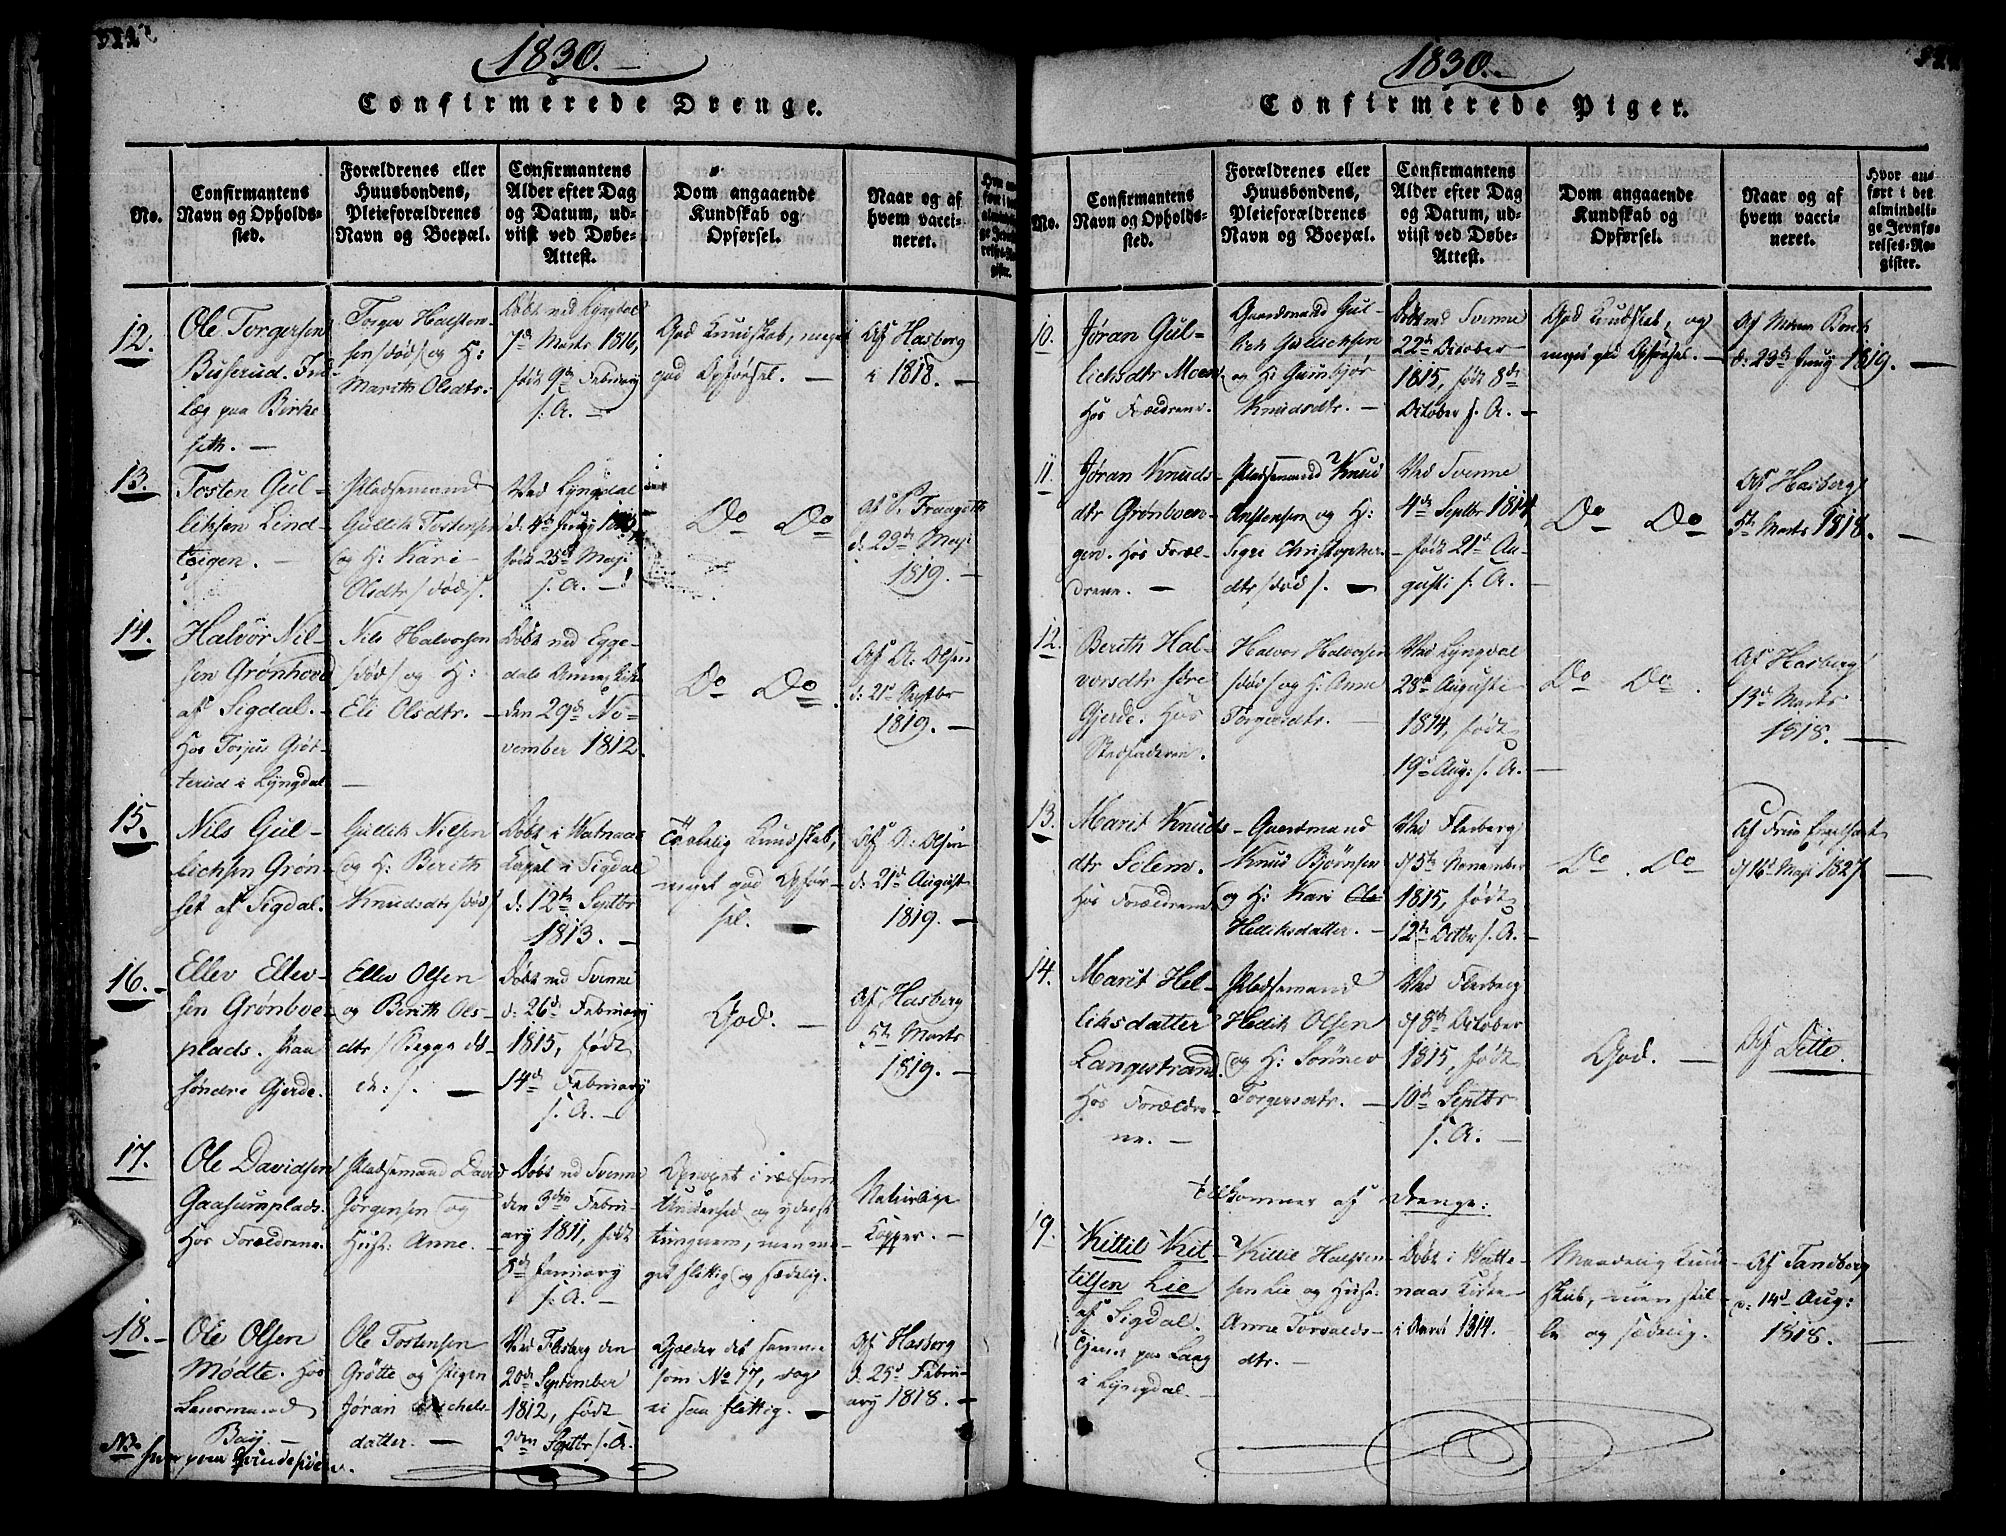 1830.
Confirmerede Drenge.
No.
Confirmantens
Navn og Opholds-
sted.
Forældrenes eller
Huusbondens,
Pleieforældrenes
Navn og Boepæl.
Confirmantens
Alder efter Dag
og Datum, ud-
viist ved Døbe-
Attest.
Dom angaaende
Kundskab og
Opførsel.
Naar og af
hvem vacci-
neret.
12.
Ole Torgersen
Buserud. Ind-
læg paa Birke-
seth. —
Torger Halsten-
sen /:død:/ og H:
Marith Olsdtr:
Døbt ved Lyngdal
7de Marts 1816,
født 9de Februarij
s. A. —
God Kundskab, meget
god Opførsel. —
Af Hasberg
i 1818. —
13.
Tosten Gul-
liksen Lind-
teigen. —
Pladsemand
Gullik Tostensen
og H: Kari
Olsdtr /:død:/.
Ved Lyngdal
født 25de Maji
s. A. —
Do Do
d: 29de Maji
1819. —
14.
Halvor Nil-
sen Grønhovd
af Sigdal. —
Hos Torjus Grøt-
terud i Lyngdal
Nils Halvorsen
/:død:/ og H:
Eli Olsdtr. —
Døbt ved Egge-
dals Annexkirke
den 29de No-
vember 1812.
Do Do.
Af A: Olsen
d: 21de Septbr
1819. —
15.
Nils Gul-
lichsen Grøn-
set af Sigdal.
Gullik Nilsen
og H: Berith
Knudsdtr /:død:/
Døbt i Watnaas
Capel i Sigdal
d: 12te Septbr
1813. —
Taalelig Kundskab,
meget god Opfør-
sel. —
Af A: Olsen
d: 21de August
1819. —
16. —
Ellev Ellev-
sen Grønboe-
plads. Paa
søndre Gjerde.
Ellev Olsen
og Berith Ols-
dtr /:Begge dø-
de:/. —
Døbt ved Svenne
d: 26de Februarij
1815, født
14de Februarij
s. A. —
God. —
Af Hasberg
5te Marts
1819. —
17.
Ole Davidsen
Gaasumplads.
Hos Forældrene.
Pladsemand David
Jørgensen og
Hust: Anne. —
Døbt ved Svenne
den 3die Febru-
arij 1811, født
Januarij
s. A. —
Opvoxet i
Uvidenhed og yderst
tungnem, men me-
get flittig og sædelig.
Naturlige
Kopper. —
18. —
Ole Olsen
Mødte. Hos
Lensmand
Baÿ. —
Ole Tostensen
Grøtte og Pigen
Jøran Michels-
datter. —
Ved Flesberg den
20de September
1812, født
2den Septbr s. A.
Gjelder det samme
som No 17, dog
ei saa flittig. —
Af Hasberg
d. 25de Febru-
arij 1818. —
NB.
1830. —
Confirmerede Piger.
No.
Confirmantens
Navn og Opholds-
sted.
Forældrenes eller
Huusbondens,
Pleieforældrenes
Navn og Boepæl.
Confirmantens
Alder efter Dag
og Datum, ud-
viist ved Døbe-
Attest.
Dom angaaende
Kundskab og
Opførsel.
Naar og af
hvem vacci-
neret.
Hvor an-
ført i det
almindeli-
ge Jevnfø-
relses-Re-
gister.
10.
Jøran Gul-
lichsdtr Moen
Hos Forældrene.
Gaardmand Gul-
lich Gullichsen
og H: Gunbjør
Knudsdtr. —
Døbt ved Svenne
22de October
1815, født 8de
October s. A. —
God Kundskab, og
megen god Opførsel. —
1819. —
11.
Jøran Knuds-
dtr Grønboen-
gen. Hos Foræl-
drene. —
Pladsemand Knud
og H:
Sigri Christopher-
dtr. /:død:/. —
Ved Svenne
4de Septbr 1814,
— født 21de Au-
gusti s. A. —
Do Do
Af Hasberg
5te Marts 1818. —
12.
Berith Hal-
vorsdtr
Gjerde. Hos
Stedfaderen.
Halvor Halvorsen
/:død:/ og H: Anne
Torgersdtr. —
Ved Lyngdal
28de Augusti
1814, født
19de Aug: s. A.
Do Do.
Af Hasberg
Marts
1818. —
13.
Marit Knuds-
dtr Solem.
Hos Forældrene
Gaardmand
Knud Bjørnsen
og H: Kari
Helliksdatter. —
Ved Flesberg
d: 5te November
1815, født
12te Octbr s. A. —
Do. Do
d: 16de Maji 1827 —
14.
Marit Hel-
liksdatter
Langestrand.
Hos Forældre-
ne. —
Pladsemand
Hellik Olsen
og H: Sønnev
Torgersdtr. —
Ved Flesberg
d: 8de October
1815, født
10de Septbr
s. A. —
God. —
Af Ditto.
Tilkommer af Drenge:
19.
Kittil Kit-
tilsen Lie
af Sigdal.
Tjener paa Laag
i Lyngdal. —
Kittil Halsten-
sen Lie og Hust:
Anne Torvalds-
dtr. —
Døbt i Watte-
naas Kirke
i Aaret 1814.
Maadelig Kund-
skab, men stil-
le og sædelig.
Af Tandberg
d: 14de Aug:
1818. —